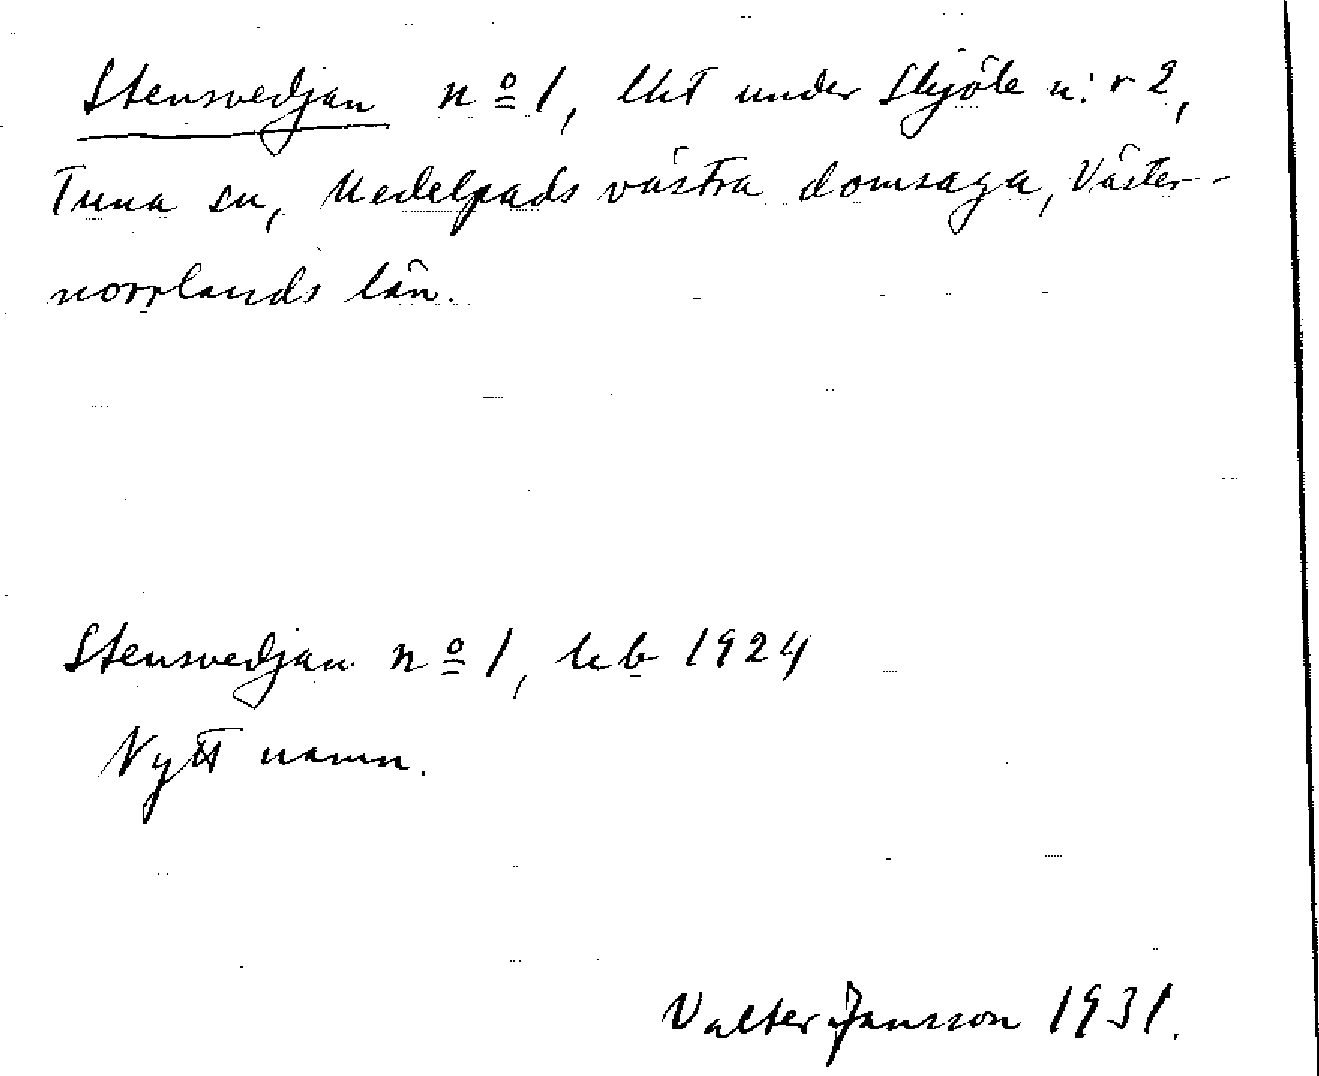 Stensvedjan nº 1, lht under Skjöle n:r 2,
Tuna sn, Medelpads västra domsaga, Väster-
norrlands län.
Stensvedjan nº 1, leb 1924
Nytt namn.
Valter Jansson 1931.